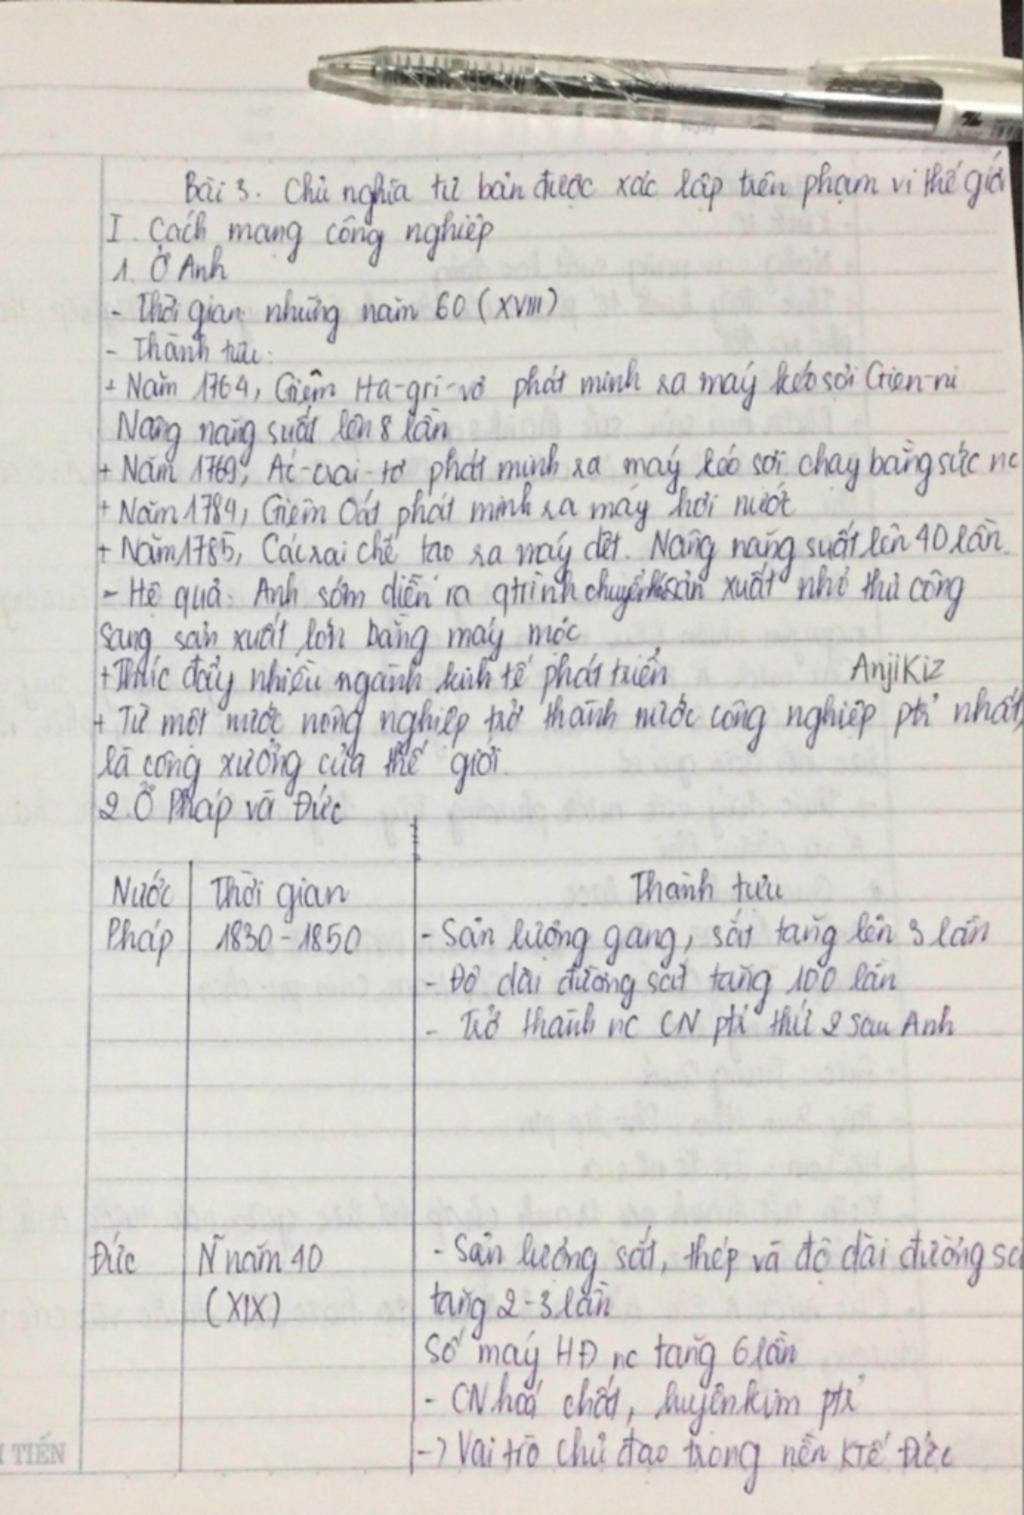 Bài 3. Chủ nghĩa tư bản được xác lập trên phạm vi thế giới
I. Cách mạng công nghiệp
1. Ở Anh
- Thời gian những năm 60 (XVIII)
- Thành tựu:
+ Năm 1764, Giêm Ha-gri-vơ phát minh ra máy kéo sợi Gien-ni
Nâng năng suất lên 8 lần
+ Năm 1769, Ác-crai-tơ phát minh ra máy kéo sợi chạy bằng sức nc
+ Năm 1784, Giêm Oát phát minh ra máy hơi nước
+ Năm 1785, Các-rai chế tạo ra máy dệt. Nâng năng suất lên 40 lần.
- Hệ quả: Anh sớm diễn ra qtrình chuyển từ sản xuất nhỏ thủ công
sang sản xuất lớn bằng máy móc
+ Thúc đẩy nhiều ngành kinh tế phát triển
AnjiKiz
+ Từ một nước nông nghiệp trở thành nước công nghiệp ptr nhất,
là công xưởng của thế giới.
2. Ở Pháp và Đức
Nước Thời gian Thành tựu
Pháp 1830-1850 - Sản lượng gang, sắt tăng lên 3 lần
- Độ dài đường sắt tăng 100 lần
- Trở thành nc CN ptr thứ 2 sau Anh
Đức N~ năm 40 - Sản lượng sắt, thép và độ dài đường sắ
(XIX) tăng 2-3 lần
Số máy HĐ nc tăng 6 lần
- CN hoá chất, luyện kim ptr
-> Vai trò chủ đạo trong nền KTế Đức
TIẾN